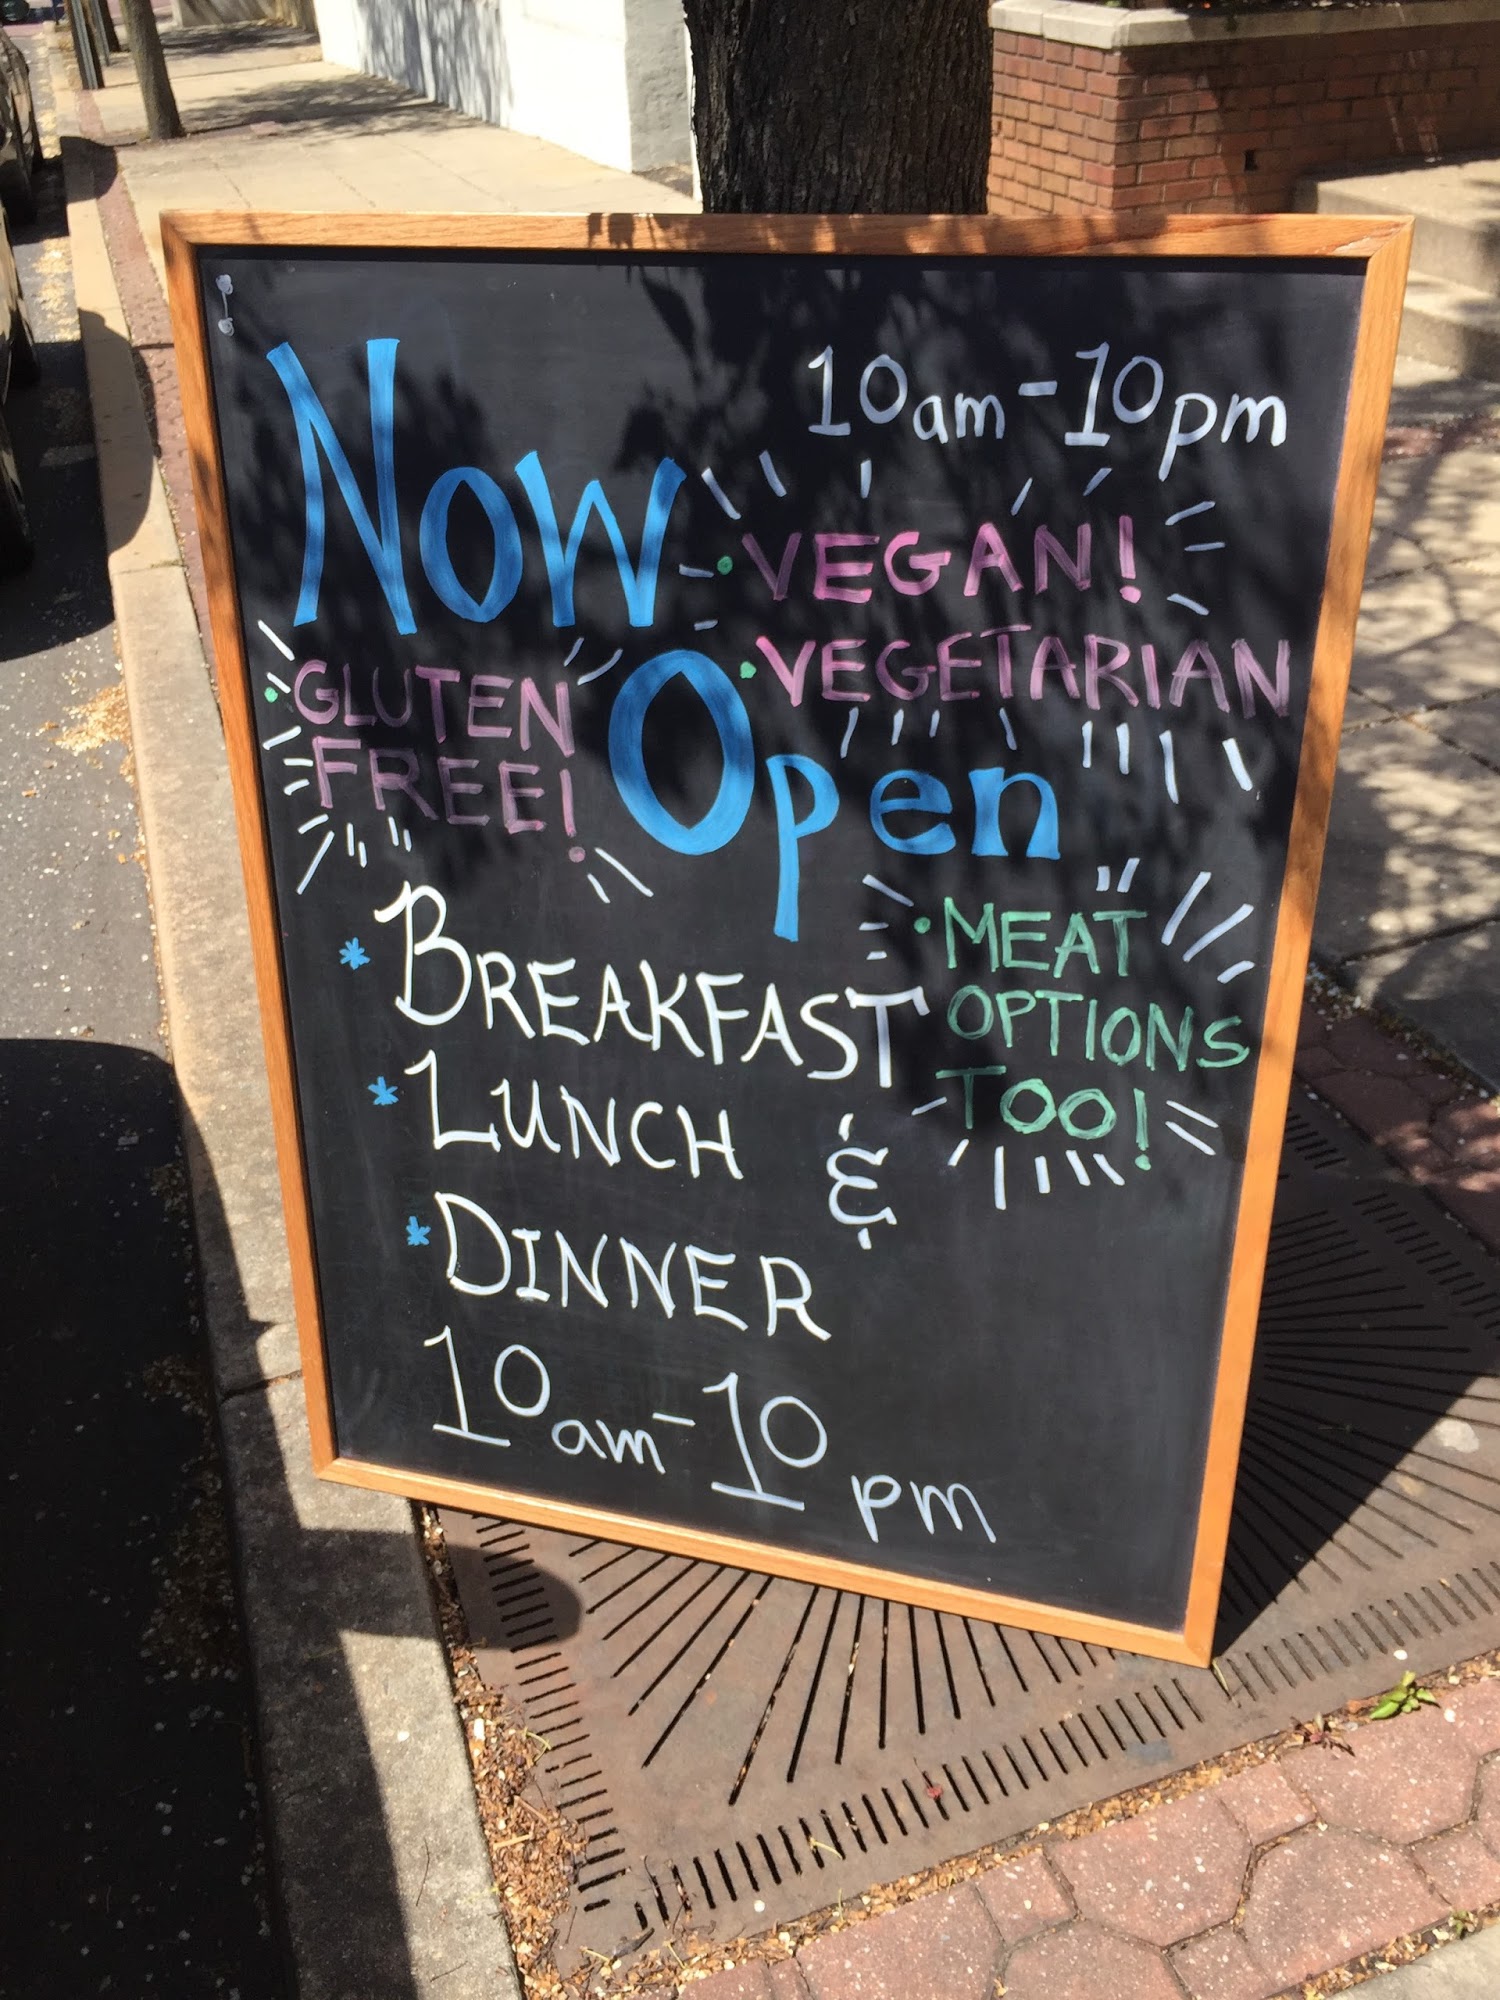 10am-10pm
Now
• VEGAN!
• VEGETARIAN
• GLUTEN
FREE!
Open
• MEAT
OPTIONS
TOO!
* BREAKFAST
* LUNCH &
* DINNER
10am-10pm